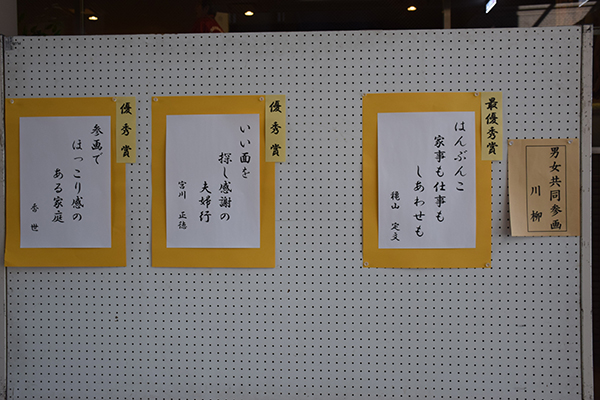 男女共同参画
川柳
最優秀賞
はんぶんこ
家事も仕事も
しあわせも
穐山 定文
優秀賞
いい面を
探し感謝の
夫婦行
宮川 正徳
優秀賞
参画で
ほっこり感の
ある家庭